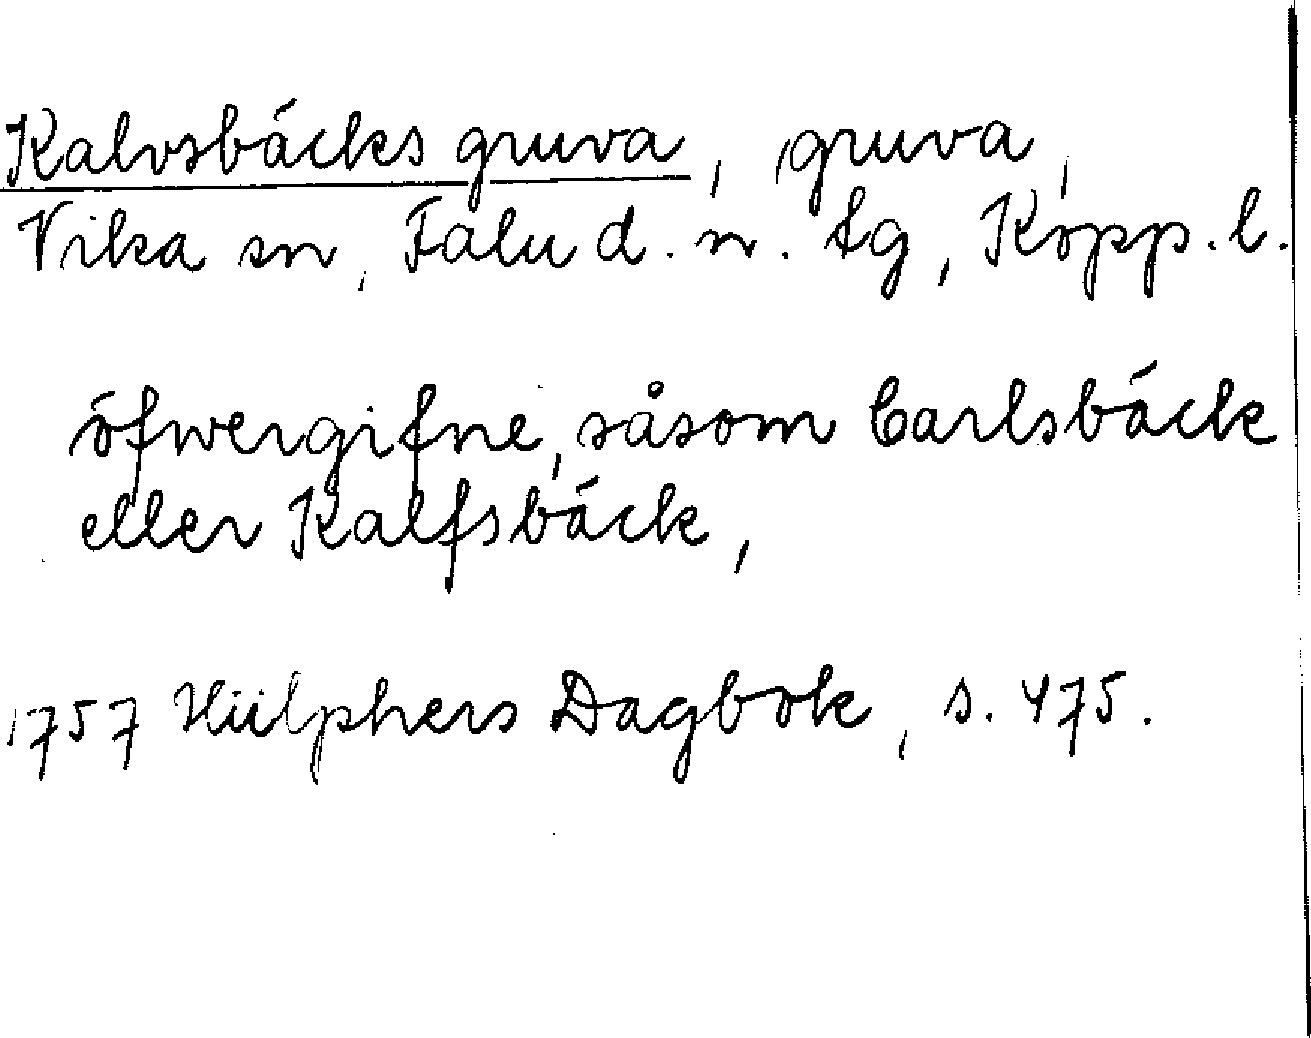 Kalvsbäcks gruva, gruva,
Vika sn, Falu d. n. tg, Kopp. l.
öfwergifne, såsom Carlsbäck
eller Kalfsbäck,
1757 Hülphers Dagbok, s. 475.